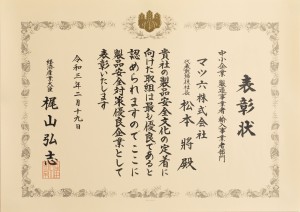 表彰状
中小企業 製造事業者・輸入事業者部門
マツ六株式会社
代表取締役社長 松本 將 殿
貴社の製品安全文化の定着に
向けた取組は最も優良であると
認められますのでここに
製品安全対策優良企業として
表彰いたします
令和三年二月十九日
経済産業大臣 梶山弘志